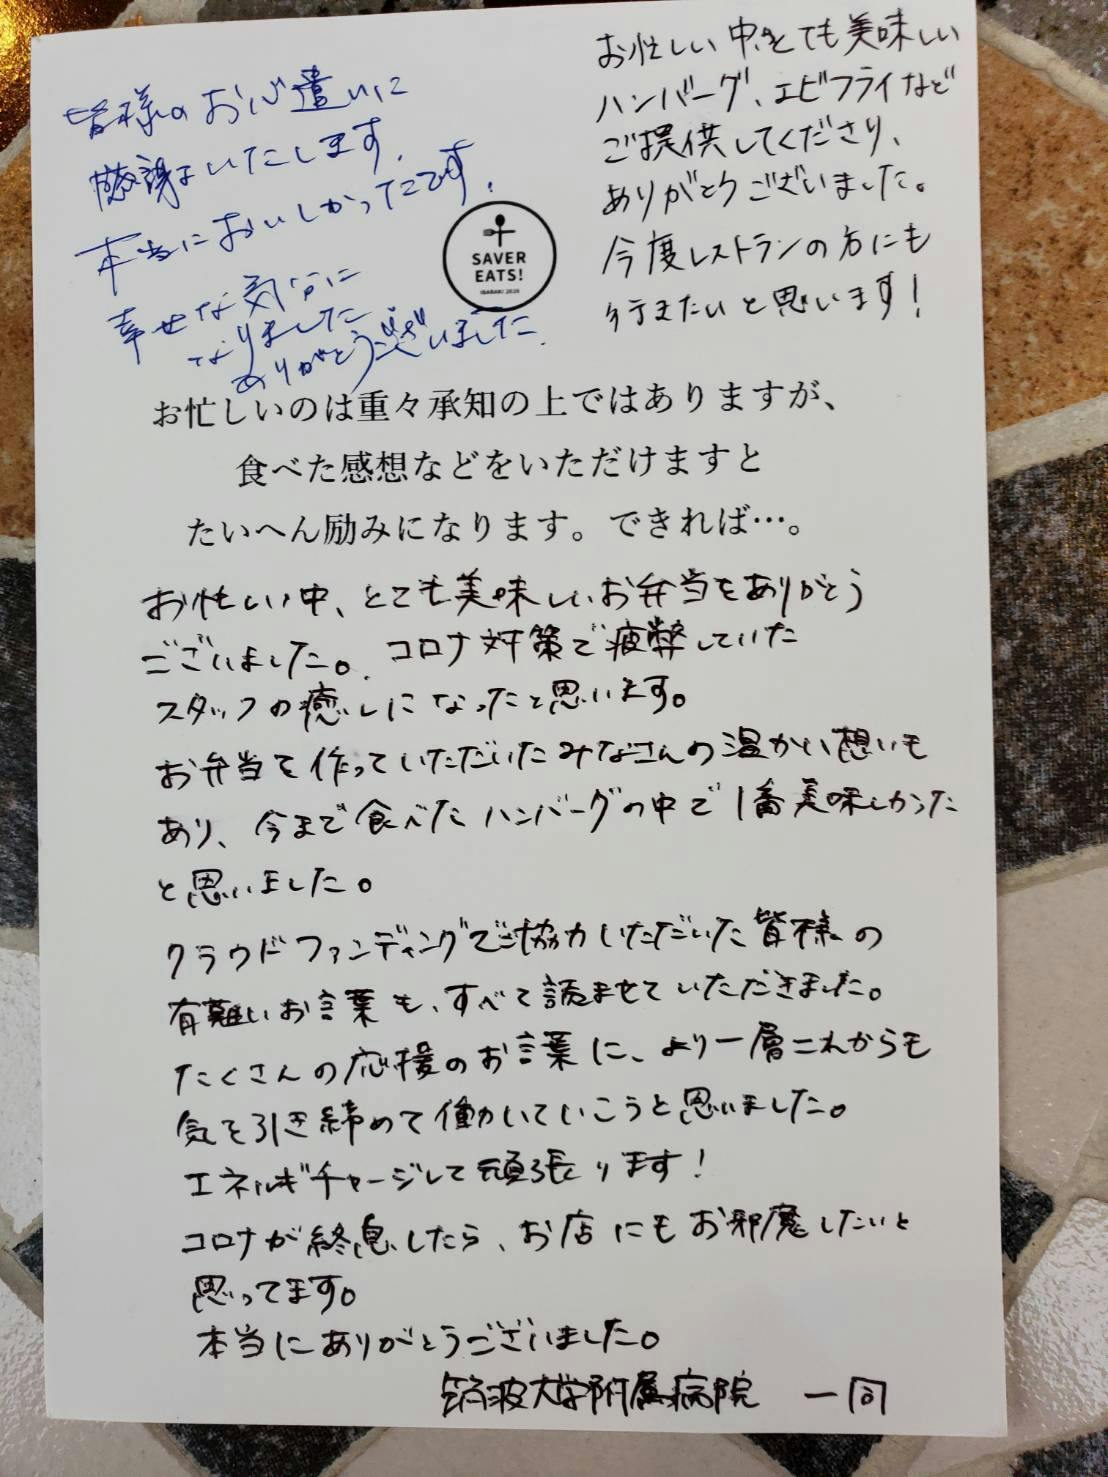 皆様のお心遣いに
感謝いたします。
本当においしかったです!
幸せな気分に
なりました
ありがとうございました.
お忙しい中、とても美味しい
ハンバーグ、エビフライなど
ご提供してくださり、
ありがとうございました。
今度レストランの方にも
行きたいと思います!
SAVER
EATS!
IBARAKI 2020
お忙しいのは重々承知の上ではありますが、
食べた感想などをいただけますと
たいへん励みになります。できれば…。
お忙しい中、とても美味しいお弁当をありがとう
ございました。コロナ対策で疲弊していた
スタッフの癒しになったと思います。
お弁当を作っていただいたみなさんの温かい想いも
あり、今まで食べたハンバーグの中で1番美味しかった
と思いました。
クラウドファンディングでご協力いただいた皆様の
有難いお言葉も、すべて読ませていただきました。
たくさんの応援のお言葉に、より一層これからも
気を引き締めて働いていこうと思いました。
エネルギチャージして頑張ります!
コロナが終息したら、お店にもお邪魔したいと
思ってます。
本当にありがとうございました。
筑波大学附属病院 一同